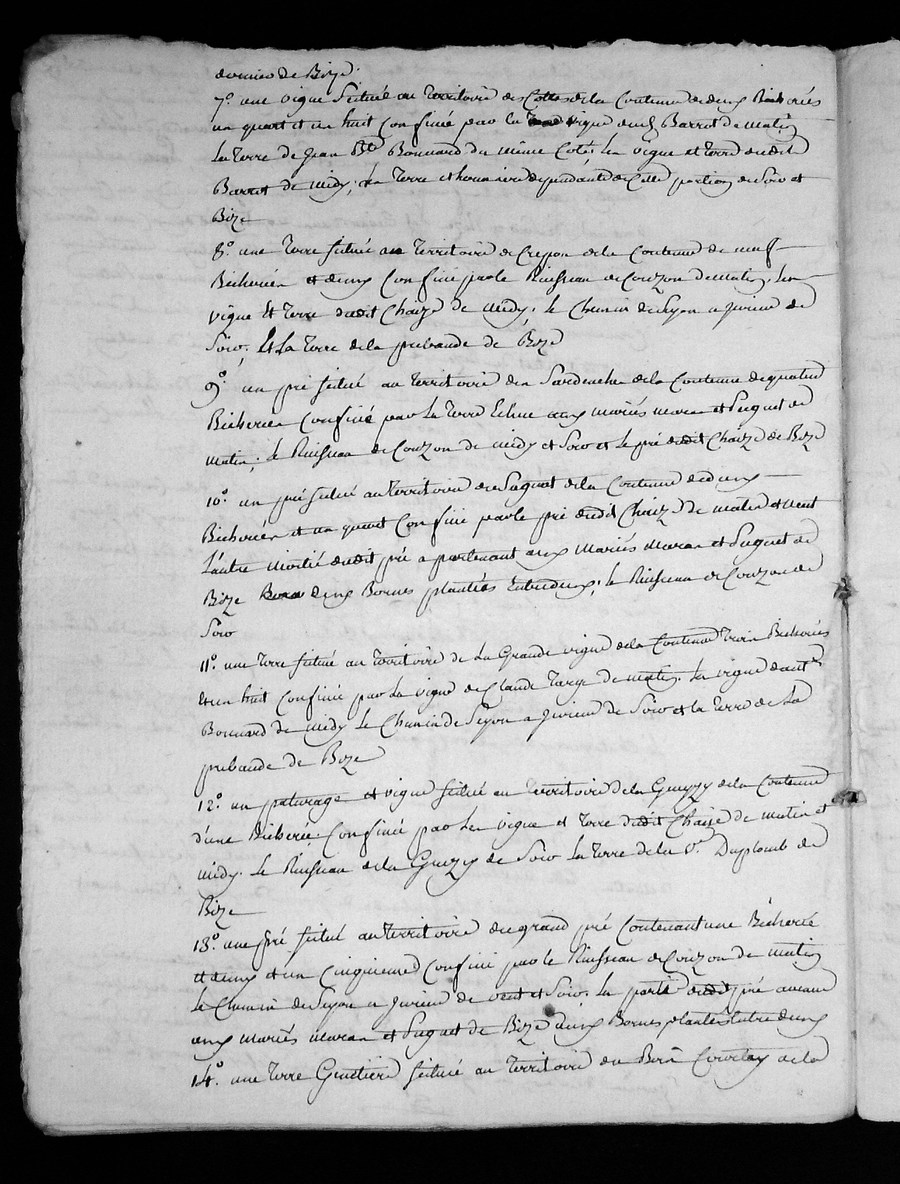 dernier de Bize.
7.° une vigne située au Territoire de de la Contenue de deux Bicherées
un quart et un huit Confinée par la vigne dud Barret de matin
La Terre de Jean Bte Bonnard du même Coté, la vigne et Terre dudit
Barret de midy; la Terre et dependante de Cette portion de Soir et
Bize
8.° une Terre située au Territoire de Crepon de la Contenue de neuf
Bicherées et demy Confiné par le Ruisseau de Couzon de matin, les
vigne et Terre dudit Chaize de midy; le Chemin de Lyon a de
Soir, et La Terre de la prebande de Bize
9.° un pré situé au Territoire de la de la Contenue de quatre
Bicherées Confiné par La Terre Echue aux mariés moran et Puguet de
matin; le Ruisseau de Couzon de midy et Soir et le pré dudit Chaize de Bize
10.° un pré situé au Territoire de de la Contenue de deux
Bicherées et un quart Confiné par le pré dudit Chaize de matin et vent
L'autre moitié dudit pré a partenant aux Mariés Moran et Puguet de
Bize deux Bornes plantées Entredeux; le Ruisseau de Couzon de
Soir
11.° une Terre située au Territoire de La Grande vigne de la Contenue Trois Bicherées
et un huit Confiné par La vigne de Claude de matin. La vigne
Bonnard de midy Le Chemin de Lyon a de Soir et la Terre de La
prebande de Bize
12.° un paturage et vigne située au Territoire de la de la Contenue
d'une Bicherée Confinée par les vigne et Terre dudit Chaize de matin et
midy. Le Ruisseau de la de Soir La Terre de la v.e Duplomb de
Bize
13.° une pré situé au Territoire du grand pré Contenant une Bicherée
et demy et un Cinquieme Confiné par le Ruisseau de Couzon de matin
Le Chemin de Lyon a de vent et Soir. La partie dudit pré avenue
aux mariés moran et Puguet de Bize deux Bornes plantées Entre deux
14.° une Terre située au Territoire du de la